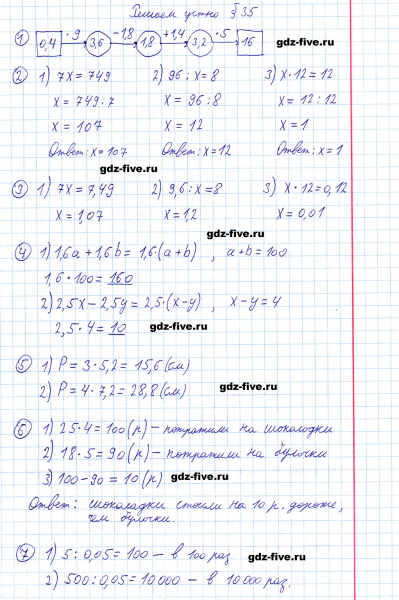 Решаем устно §35
① 0,4 ·9 3,6 -1,8 1,8 +1,4 3,2 ·5 16 gdz-five.ru
② 1) 7x = 749 2) 96 : x = 8 3) x·12 = 12
x = 749:7 x = 96:8 x = 12:12
x = 107 x = 12 x = 1
Ответ: x = 107 Ответ: x = 12 Ответ: x = 1
gdz-five.ru
③ 1) 7x = 7,49 2) 9,6 : x = 8 3) x·12 = 0,12
x = 1,07 x = 1,2 x = 0,01
gdz-five.ru
④ 1) 1,6a + 1,6b = 1,6·(a+b) , a+b = 100
1,6·100 = 160
2) 2,5x - 2,5y = 2,5·(x-y) , x-y = 4
2,5·4 = 10 gdz-five.ru
⑤ 1) P = 3·5,2 = 15,6 (см)
2) P = 4·7,2 = 28,8 (см) gdz-five.ru
⑥ 1) 25·4 = 100 (р) - потратили на шоколадки
2) 18·5 = 90 (р) - потратили на булочки
3) 100 - 90 = 10 (р) gdz-five.ru
Ответ: шоколадки стоили на 10 р. дороже,
чем булочки.
⑦ 1) 5 : 0,05 = 100 - в 100 раз gdz-five.ru
2) 500 : 0,05 = 10000 - в 10 000 раз.